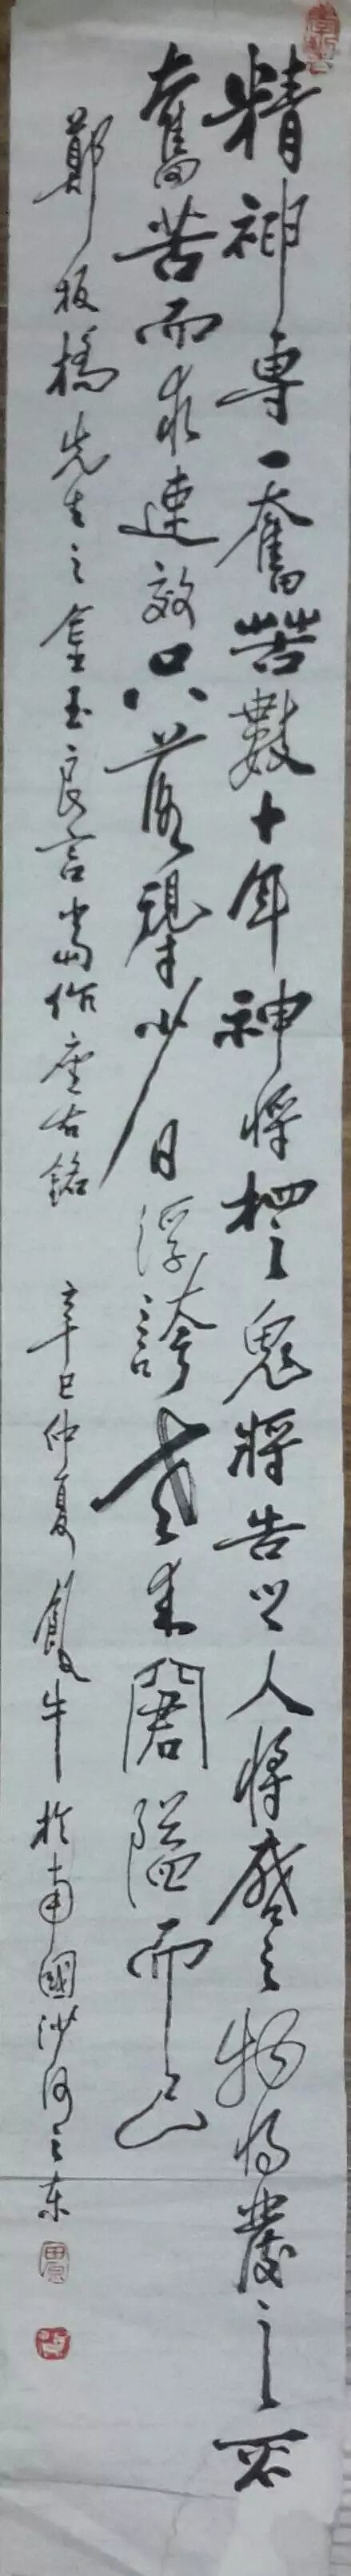 精神專一奮苦數十年神將相之鬼將告之人將啓之物將發之不
奮苦而求速效只落得少日浮誇老來窘隘而已
鄭板橋先生之金玉良言當作座右銘 辛巳仲夏 牛於南國沙河之东